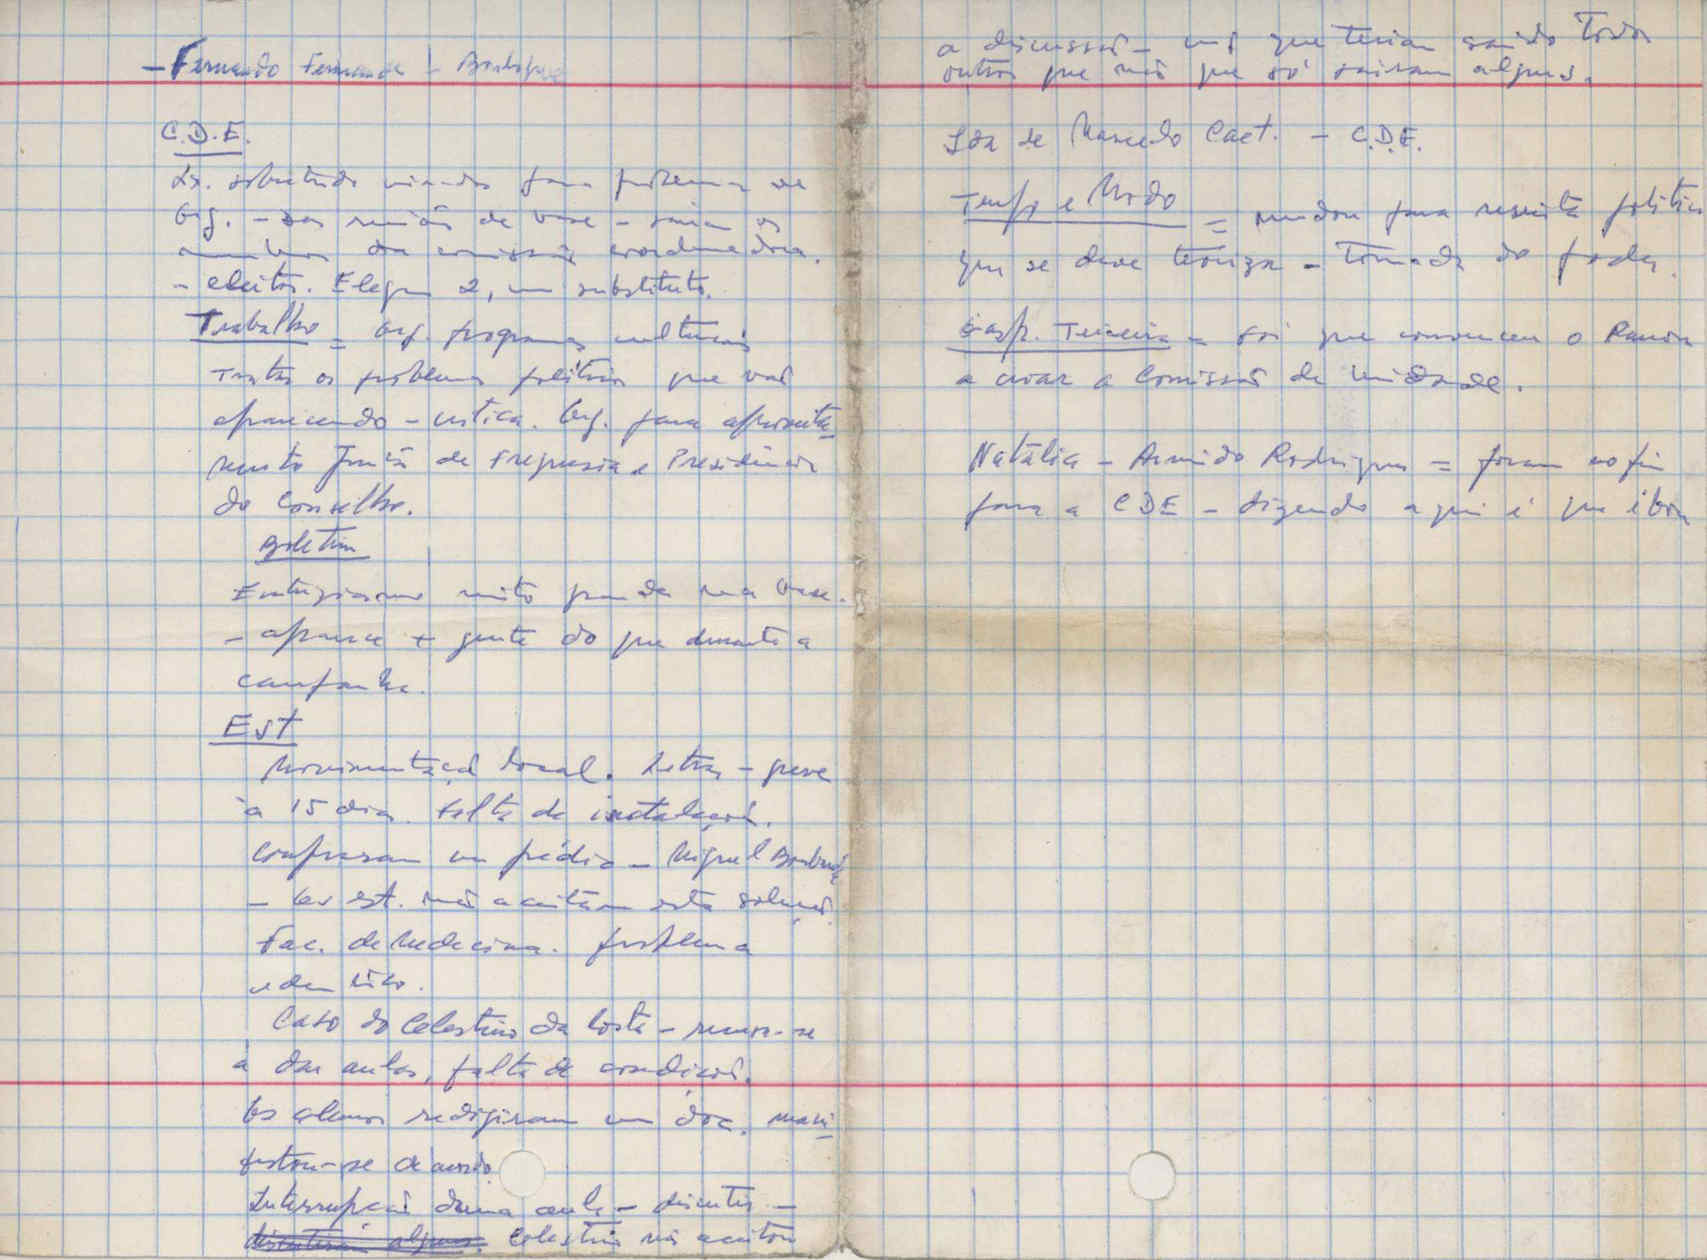 - Fernando Fernandes -
C.D.E.
Lx. sobretudo virados para problemas de
Org. - Das reuniões de base - saiem os
membros da comissão coordenadora.
- eleitos. Elegem 2, um substituto.
Trabalho = Org. programas culturais
Tratar os problemas politicos que vão
aparecendo - critica. Org. para aproveita-
mento Junta de Freguesia e Presidência
do Conselho.
Boletim
Entusiasmo muito grande na base.
- aparece + gente do que durante a
campanha.
Est
Movimentação Local. Letras - greve
à 15 dias. Falta de instalações.
Compraram um prédio - Miguel Bombarda
- Os est. não aceitaram esta solução.
Fac. de Medecina. problema
identico.
Caso do Celestino da Costa - recusa-se
a dar aulas, falta de condições.
Os alunos redigiram um doc. mani-
festou-se de acordo.
Interrupção duma aula - discutir -
discutiram alguns. Celestino não aceitou
a discussão - uns que teriam saido Todos
outros que não que só sairam alguns.
Ida de Marcedo Caet. - C.D.E.
Tempo e Modo = mudou para revista politica
que se deve teorizar - Tomada do poder.
Gasp. Teixeira - foi que convenceu o Ramos
a criar a Comissão de Unidade.
Natália - Armindo Rodrigues = foram no fim
para a CDE - dizendo aqui é que é bom